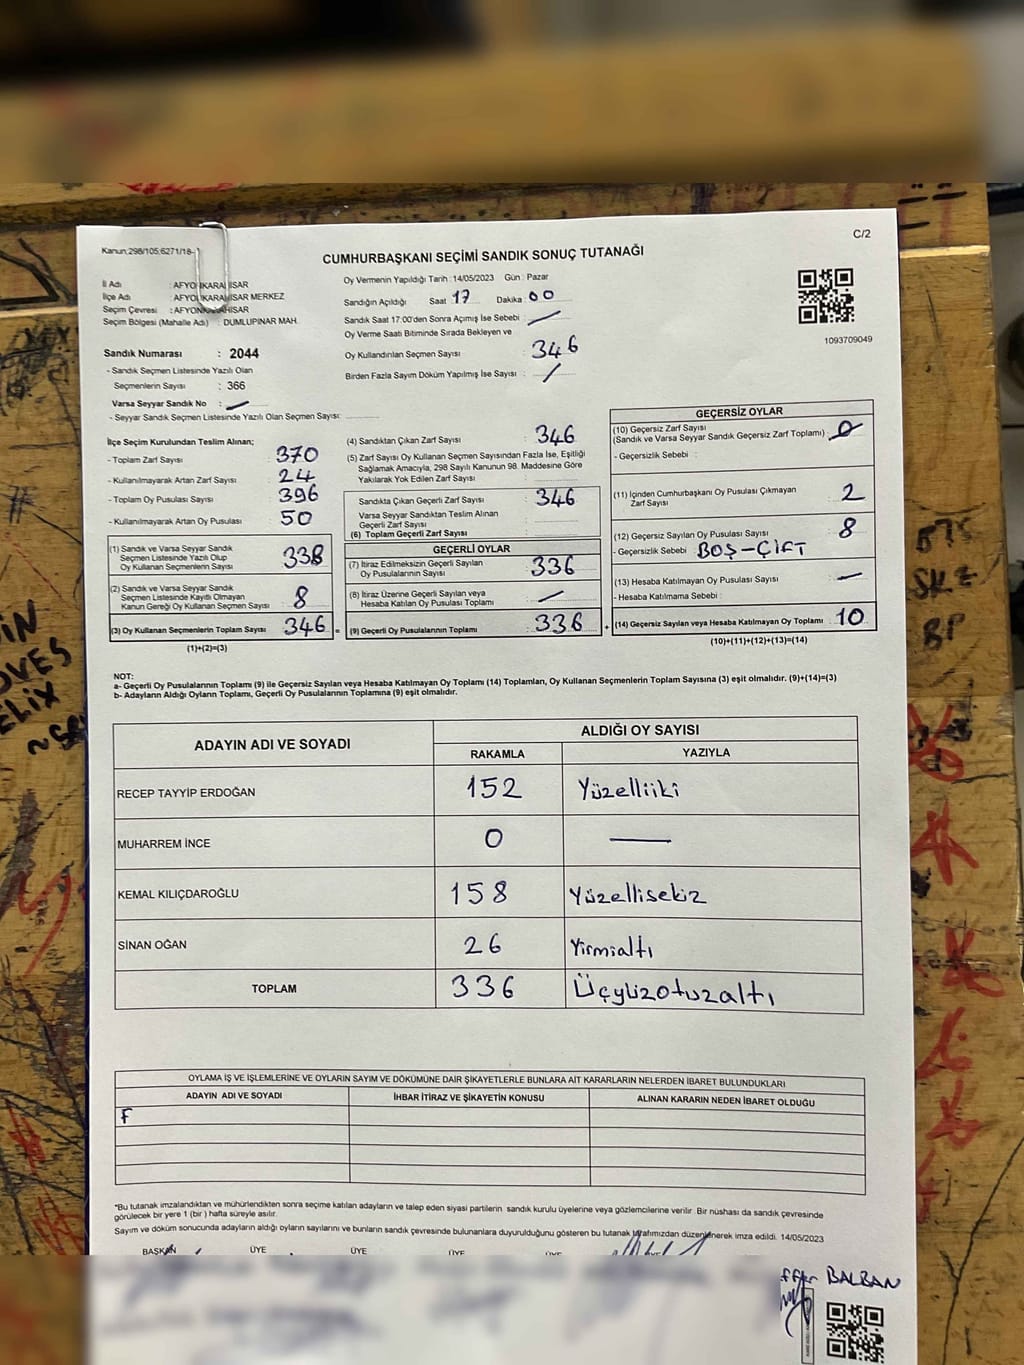 Kanun;298/105;6271/18-
C/2
CUMHURBAŞKANI SEÇİMİ SANDIK SONUÇ TUTANAĞI
İl Adı : AFYONKARAHİSAR
İlçe Adı : AFYONKARAHİSAR MERKEZ
Seçim Çevresi : AFYONKARAHİSAR
Seçim Bölgesi (Mahalle Adı) : DUMLUPINAR MAH.
Oy Vermenin Yapıldığı Tarih : 14/05/2023 Gün : Pazar
Sandığın Açıldığı Saat 17 Dakika 00
Sandık Saat 17:00'den Sonra Açımış İse Sebebi :
Oy Verme Saati Bitiminde Sırada Bekleyen ve
Oy Kullandırılan Seçmen Sayısı : 346
Birden Fazla Sayım Döküm Yapılmış İse Sayısı :
1093709049
Sandık Numarası : 2044
- Sandık Seçmen Listesinde Yazılı Olan
Seçmenlerin Sayısı : 366
Varsa Seyyar Sandık No :
- Seyyar Sandık Seçmen Listesinde Yazılı Olan Seçmen Sayısı:
İlçe Seçim Kurulundan Teslim Alınan;
- Toplam Zarf Sayısı : 370
- Kullanılmayarak Artan Zarf Sayısı : 24
- Toplam Oy Pusulası Sayısı : 396
- Kullanılmayarak Artan Oy Pusulası : 50
(1) Sandık ve Varsa Seyyar Sandık
Seçmen Listesinde Yazılı Olup
Oy Kullanan Seçmenlerin Sayısı : 338
(2) Sandık ve Varsa Seyyar Sandık
Seçmen Listesinde Kayıtlı Olmayan
Kanun Gereği Oy Kullanan Seçmen Sayısı : 8
(3) Oy Kullanan Seçmenlerin Toplam Sayısı : 346 =
(1)+(2)=(3)
(4) Sandıktan Çıkan Zarf Sayısı : 346
(5) Zarf Sayısı Oy Kullanan Seçmen Sayısından Fazla İse, Eşitliği
Sağlamak Amacıyla, 298 Sayılı Kanunun 98. Maddesine Göre
Yakılarak Yok Edilen Zarf Sayısı :
Sandıkta Çıkan Geçerli Zarf Sayısı : 346
Varsa Seyyar Sandıktan Teslim Alınan
Geçerli Zarf Sayısı :
(6) Toplam Geçerli Zarf Sayısı :
GEÇERLİ OYLAR
(7) İtiraz Edilmeksizin Geçerli Sayılan
Oy Pusulalarının Sayısı : 336
(8) İtiraz Üzerine Geçerli Sayılan veya
Hesaba Katılan Oy Pusulası Toplamı :
(9) Geçerli Oy Pusulalarının Toplamı : 336 +
GEÇERSİZ OYLAR
(10) Geçersiz Zarf Sayısı
(Sandık ve Varsa Seyyar Sandık Geçersiz Zarf Toplamı) : 0
- Geçersizlik Sebebi :
(11) İçinden Cumhurbaşkanı Oy Pusulası Çıkmayan
Zarf Sayısı : 2
(12) Geçersiz Sayılan Oy Pusulası Sayısı : 8
- Geçersizlik Sebebi : BOŞ-ÇİFT
(13) Hesaba Katılmayan Oy Pusulası Sayısı :
- Hesaba Katılmama Sebebi :
(14) Geçersiz Sayılan veya Hesaba Katılmayan Oy Toplamı : 10
(10)+(11)+(12)+(13)=(14)
NOT:
a- Geçerli Oy Pusulalarının Toplamı (9) ile Geçersiz Sayılan veya Hesaba Katılmayan Oy Toplamı (14) Toplamları, Oy Kullanan Seçmenlerin Toplam Sayısına (3) eşit olmalıdır. (9)+(14)=(3)
b- Adayların Aldığı Oyların Toplamı, Geçerli Oy Pusulalarının Toplamına (9) eşit olmalıdır.
ADAYIN ADI VE SOYADI
ALDIĞI OY SAYISI
RAKAMLA YAZIYLA
RECEP TAYYİP ERDOĞAN 152 Yüzelliiki
MUHARREM İNCE 0
KEMAL KILIÇDAROĞLU 158 Yüzellisekiz
SİNAN OĞAN 26 Yirmialtı
TOPLAM 336 Üçyüzotuzaltı
OYLAMA İŞ VE İŞLEMLERİNE VE OYLARIN SAYIM VE DÖKÜMÜNE DAİR ŞİKAYETLERLE BUNLARA AİT KARARLARIN NELERDEN İBARET BULUNDUKLARI
ADAYIN ADI VE SOYADI İHBAR İTİRAZ VE ŞİKAYETİN KONUSU ALINAN KARARIN NEDEN İBARET OLDUĞU
F
*Bu tutanak imzalandıktan ve mühürlendikten sonra seçime katılan adayların ve talep eden siyasi partilerin sandık kurulu üyelerine veya gözlemcilerine verilir. Bir nüshası da sandık çevresinde
görülecek bir yere 1 (bir ) hafta süreyle asılır.
Sayım ve döküm sonucunda adayların aldığı oyların sayılarını ve bunların sandık çevresinde bulunanlara duyurulduğunu gösteren bu tutanak tarafımızdan düzenlenerek imza edildi. 14/05/2023
BAŞKAN ÜYE ÜYE ÜYE ÜYE
BALBAN